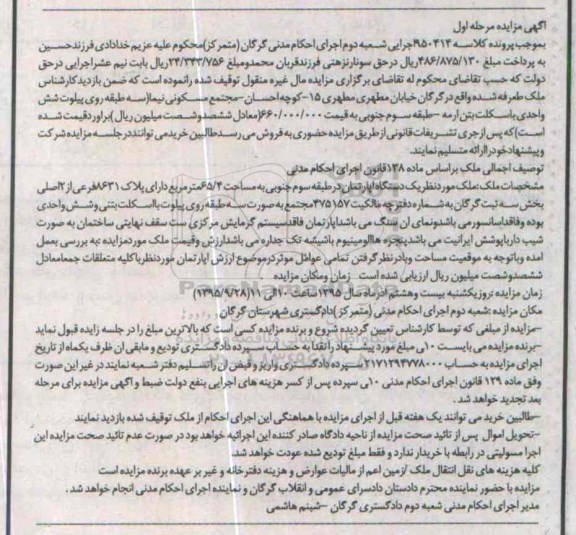 آگهی مزایده مرحله اول
بموجب پرونده کلاسه ۹۵۰۴۱۳اجرایی شعبه دوم اجرای احکام مدنی گرگان (متمرکز)محکوم علیه عزیم خدادادی فرزند حسین
به پرداخت مبلغ ۴۸۶/۸۷۵/۱۳۰ریال در حق سونار نزهتی فرزند قربان محمد و مبلغ ۲۴/۳۴۳/۷۵۶ریال بابت نیم عشر اجرایی در حق
دولت که حسب تقاضای محکوم له تقاضای برگزاری مزایده مال غیره منقول توقیف شده را نموده است که ضمن بازدید کارشناس
ملک طعرفه شده واقع در گرگان خیابان مطهری مطهری ۱۵-کوچه احسان-مجتمع مسکونی نیما(سه طبقه روی پیلوت شش
واحدی با سکلت بتن ارمه -طبقه سوم جنوبی به قیمت ۶۶۰/۰۰۰/۰۰۰(معادل ششصد و شصت میلیون ریال)براورد قیمت شده
است)که پس از جری تشریفات قانونی از طریق مزایده حضوری به فروش می رسد طالبین خرید می توانند در جلسه مزایده شرکت
و پیشنهاد خود را ارائه تسلیم نمایند.
توصیف اجمالی ملک بر اساس ماده ۱۳۸قانون اجرای احکام مدنی
مشخصات ملک :ملک مورد نظر یک دستگاه اپارتمان در طبقه سوم جنوبی به مساحت ۶۵/۴متر مربع دارای پلاک ۸۶۳۱فرعی از ۲اصلی
بخش سه ثبت گرگان به شماره دفترچه مالکیت ۴۷۵۱۵۷مجتمع به صورت سه طبقه روی پیلوت با اسکلت بتنی وشش واحدی
بوده و فاقد اسانسور می باشد و نمای ان سنگ می باشد اپارتمان فاقد سیستم گرمایش مرکزی است سقف نهایتی ساختمان به صورت
شیب دار با پوشش ایرانیت می باشد پنجره ها الومینیوم با شیشه تک جداره می باشد ارزش وقیمت ملک مورد مزایده :به بررسی بعمل
امده و با توجه به موقعیت مساحت و با در نظر گرفتن تمامی عوامل موثر در موضوع ارزش اپارتمان مورد نظر با کلیه متلقات جمعا معادل
ششصد و شصت میلیون ریال ارزیابی شده است   زمان ومکان مزایده
زمان مزایده :روز یکشنبه بیست و هشتم اذر ماه سال ۱۳۹۵ساعت ۱۰الی ۱۱(۱۳۹۵/۹/۲۸)
مکان مزایده :شعبه دوم اجرای احکام مدنی (متمرکز)دادگستری شهرستان گرگان
-مزایده از مبلغی که توسط کارشناس تعیین گردیده شروع و برنده مزایده کسی است که بالاترین مبلغ را در جلسه زایده قبول نماید
-برنده مزایده می بایست ۱۰٪ مبلغ مورد پیشنهاد را نقدا به حساب سپرده دادگستری تودیع و مابقی ان ظرف یکماه از تاریخ
اجرای مزایده به حساب ۲۱۷۱۲۹۳۷۷۸۰۰۰سپرده دادگستری واریز و قبض ان را تسلیم دفتر شعبه نمایند در غیر این صورت
وفق ماده ۱۲۹ قانون اجرای احکام مدنی ۱۰٪ سپرده پس از کسر هزینه های اجرایی بنفع دولت ضبط و اگهی مزایده برای مرحله
بعد تجدید خواهد شد.
-طالبین خرید می توانند یک هفته قبل از اجرای مزایده با هماهنگی این اجرای احکام از ملک توقیف شده بازدید نمایند
-تحویل اموال پس از تائید صحت مزایده از ناحیه دادگاه صادر کننده این اجرائیه خواهد بود در صورت عدم تائید صحت مزایده این
اجرا مسولیتی در رابطه با خریدار ندارد و فقط مبلغ تودیع شده عودت خواهد شد.
کلیه هزینه های نقل انتقال ملک ازمین اعم از مالیات عوارض و هزینه دفترخانه و غیر بر عهده برنده مزایده است
مزایده با حضور نماینده محترم دادستان دادسرای عمومی و انقلاب گرگان و نماینده اجرای احکام مدنی انجام خواهد شد.
مدیر اجرای احکام مدنی شعبه دوم دادگستری گرگان -شبنم هاشمی